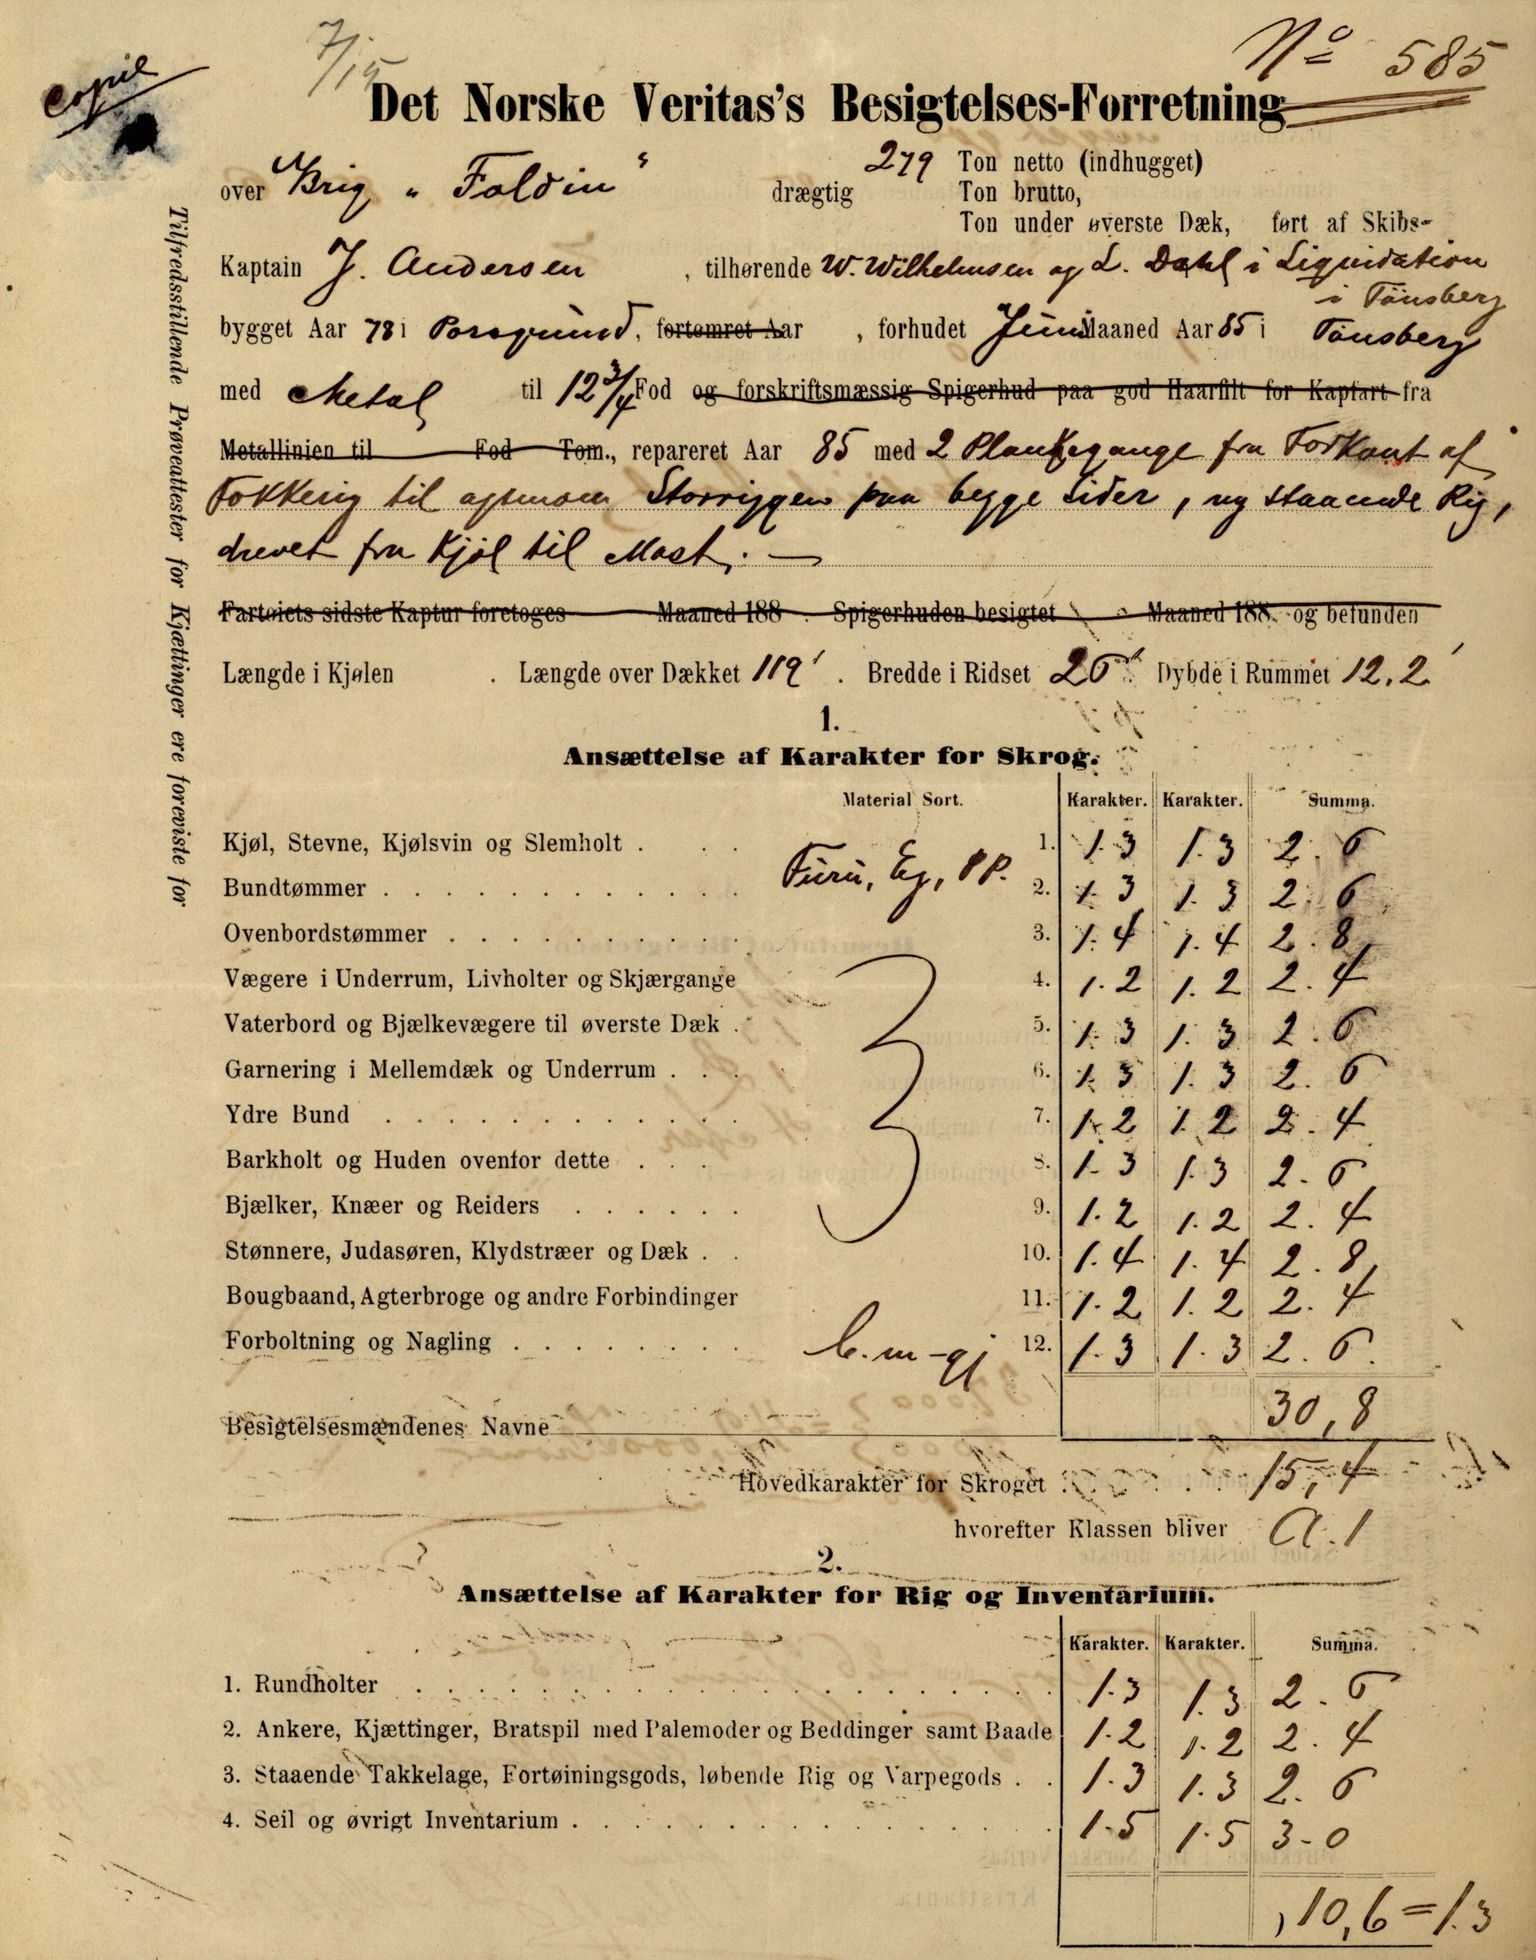 7/15
No 585
Copie
Det Norske Veritas's Besigtelses-Forretning
over Brig „ Foldin " drægtig 279 Ton netto (indhugget)
Ton brutto,
Ton under øverste Dæk, ført af Skibs-
Kaptain J. Andersen , tilhørende W. Wilhelmsen og L. Dahl i Liquidation
i Tönsberg
bygget Aar 78 i Porsgrund, fortømret Aar , forhudet Juni Maaned Aar 85 i Tönsberg
med Metal til 12 3/4 Fod og forskriftsmæssig Spigerhud paa god Haarfilt for Kapfart fra
Metallinien til Fod Tom., repareret Aar 85 med 2 Plankegange fra Forkant af
Fokkerig til agtenom Storriggen paa begge Sider, ny staaende Rig,
drevet fra Kjøl til Mast. —
Fartøiets sidste Kaptur foretoges Maaned 188 . Spigerhuden besigtet Maaned 188 . og befunden
Længde i Kjølen . Længde over Dækket 119' . Bredde i Ridset 26' . Dybde i Rummet 12.2'
1.
Ansættelse af Karakter for Skrog.
Material Sort. Karakter. Karakter. Summa.
Kjøl, Stevne, Kjølsvin og Slemholt . . . 1. 1.3 1.3 2.6
Furu, Eg, P P.
Bundtømmer . . . . . . . . . . . 2. 1.3 1.3 2.6
Ovenbordstømmer . . . . . . . . . 3. 1.4 1.4 2.8
Vægere i Underrum, Livholter og Skjærgange 4. 1.2 1.2 2.4
Vaterbord og Bjælkevægere til øverste Dæk . 5. 1.3 1.3 2.6
Garnering i Mellemdæk og Underrum . . . 6. 1.3 1.3 2.6
Ydre Bund . . . . . . . . . . . 7. 1.2 1.2 2.4
Barkholt og Huden ovenfor dette . . . 8. 1.3 1.3 2.6
Bjælker, Knæer og Reiders . . . . . . 9. 1.2 1.2 2.4
Stønnere, Judasøren, Klydstræer og Dæk . . 10. 1.4 1.4 2.8
Bougbaand, Agterbroge og andre Forbindinger 11. 1.2 1.2 2.4
Forboltning og Nagling . . . . . . . 12. 1.3 1.3 2.6.
30,8
Besigtelsesmændenes Navne
Hovedkarakter for Skroget . 15,4
hvorefter Klassen bliver A.1
2.
Ansættelse af Karakter for Rig og Inventarium.
Karakter. Karakter. Summa.
1. Rundholter . . . . . . . . . . . . . . . . . . . . 1.3 1.3 2.6
2. Ankere, Kjættinger, Bratspil med Palemoder og Beddinger samt Baade 1.2 1.2 2.4
3. Staaende Takkelage, Fortøiningsgods, løbende Rig og Varpegods . . 1.3 1.3 2.6
4. Seil og øvrigt Inventarium . . . . . . . . . . . . . 1.5 1.5 3.0
10,6 = 1.3
Tilfredsstillende Prøveattester for Kjættinger ere foreviste for